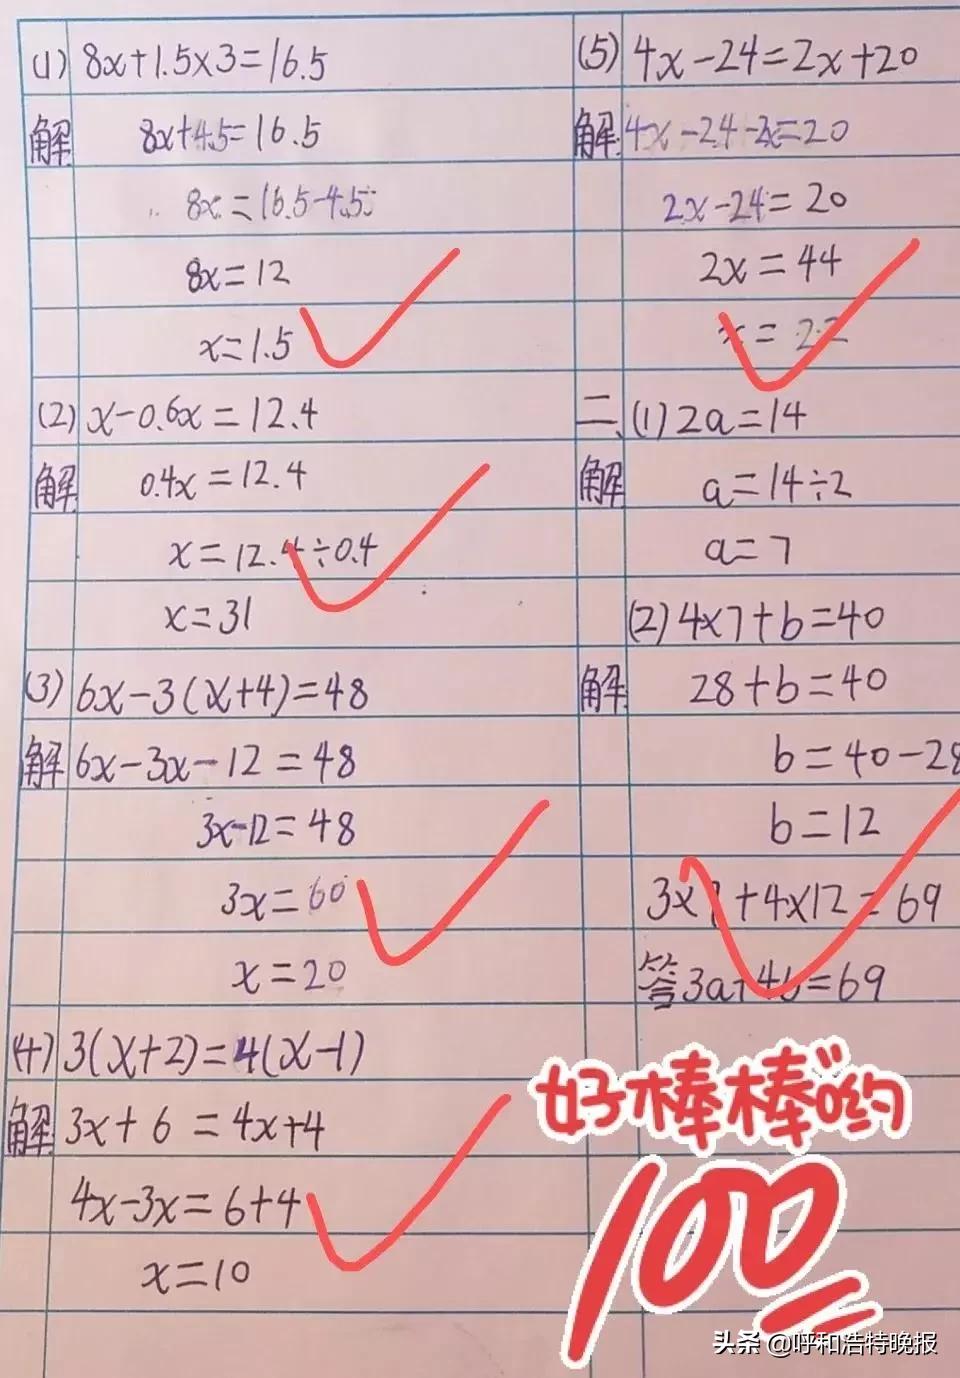 (1) 8x+1.5×3=16.5
解 8x+4.5=16.5
8x=16.5-4.5
8x=12
x=1.5
(2) x-0.6x=12.4
解 0.4x=12.4
x=12.4÷0.4
x=31
(3) 6x-3(x+4)=48
解 6x-3x-12=48
3x-12=48
3x=60
x=20
(4) 3(x+2)=4(x-1)
解 3x+6=4x+4
4x-3x=6+4
x=10
(5) 4x-24=2x+20
解 4x-24-2x=20
2x-24=20
2x=44
x=22
二、(1) 2a=14
解 a=14÷2
a=7
(2) 4×7+b=40
解 28+b=40
b=40-28
b=12
3×7+4×12=69
答 3a+4b=69
好棒棒哟
100
头条 @呼和浩特晚报